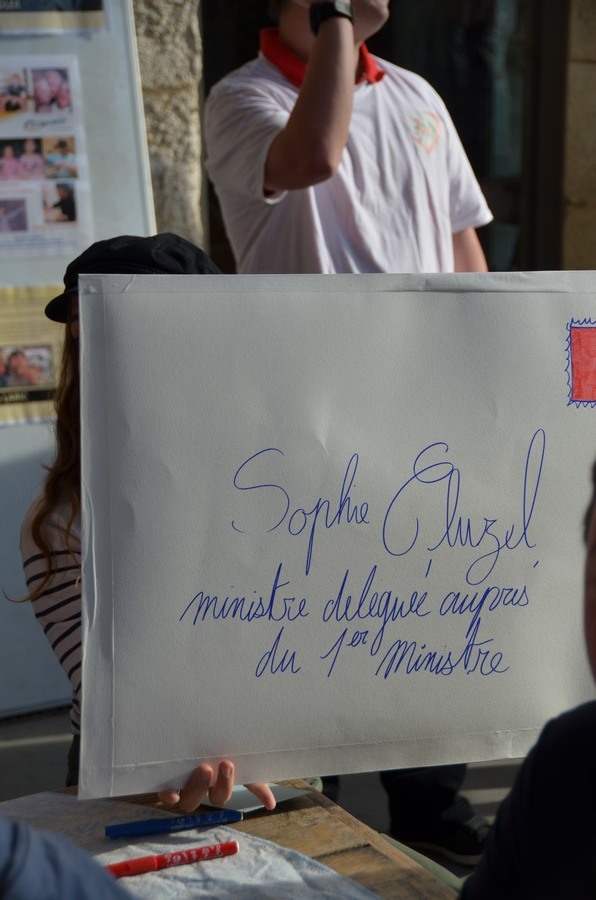 Sophie Cluzel
ministre deleguée auprés
du 1er Ministre